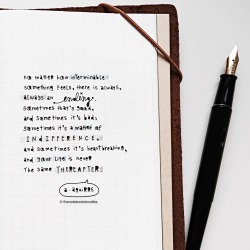 no matter how interminable
something feels, there is always,
always an ending.
sometimes that's good,
and sometimes it's bad,
sometimes it's a matter of
INDIFFERENCE,
and sometimes it's heartbreaking,
and your life is never
the same THEREAFTER
a. aguirre